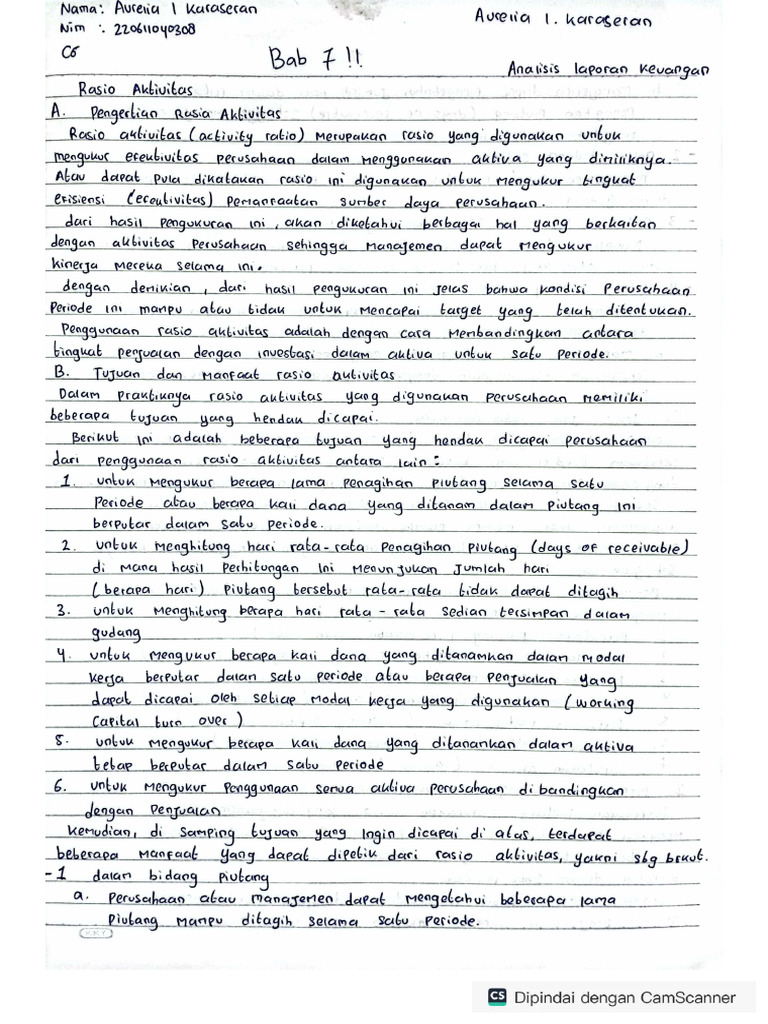 Nama: Aurelia I Karaseran
Aurelia I. Karaseran
Nim : 220611040308
C6
Bab 7 !!
Analisis laporan Keuangan
Rasio Aktivitas
A. Pengertian Rasia Aktivitas
Rasio aktivitas (activity ratio) merupakan rasio yang digunakan untuk
mengukur efektivitas perusahaan dalam menggunakan aktiva yang dimiliknya.
Atau dapat pula dikatakan rasio ini digunakan untuk mengukur tingkat
efisiensi (efektivitas) Pemanfaatan sumber daya perusahaan.
dari hasil pengukuran ini, akan diketahui berbagai hal yang berkaitan
dengan aktivitas Perusahaan sehingga Manajemen dapat Mengukur
kinerja Mereka selama ini.
dengan demikian, dari hasil pengukuran ini jelas bahwa kondisi Perusahaan
Periode ini mampu atau tidak untuk Mencapai target yang telah ditentukan.
Penggunaan rasio aktivitas adalah dengan cara Membandingkan antara
tingkat penjualan dengan investasi dalam aktiva untuk satu Periode.
B. Tujuan dan Manfaat rasio aktivitas
Dalam praktiknya rasio aktivitas yang digunakan perusahaan memiliki
beberapa tujuan yang hendak dicapai.
Berikut ini adalah beberapa tujuan yang hendak dicapai perusahaan
dari penggunaan rasio aktivitas antara lain :
1. untuk Mengukur berapa lama penagihan piutang selama satu
Periode atau berapa kali dana yang ditanam dalam Piutang ini
berputar dalam satu periode.
2. untuk Menghitung hari rata-rata Penagihan Piutang (days of receivable)
di mana hasil Perhitungan ini Menunjukan Jumlah hari
(berapa hari) Piutang tersebut rata-rata tidak dapat ditagih
3. untuk Menghitung berapa hari rata-rata sedian tersimpan dalam
gudang
4. untuk mengukur berapa kali dana yang ditanamkan dalam modal
kerja berputar dalam satu periode atau berapa penjualan yang
dapat dicapai oleh setiap modal kerja yang digunakan (working
Capital turn over)
5. untuk Mengukur berapa kali dana yang ditanamkan dalam aktiva
tetap berputar dalam satu periode
6. untuk Mengukur Penggunaan semua aktiva perusahaan di bandingkan
dengan Penjualan
kemudian, di samping tujuan yang ingin dicapai di atas, terdapat
beberapa manfaat yang dapat dipetik dari rasio aktivitas, yakni sbg brkut.
-1 dalam bidang Piutang
a. Perusahaan atau manajemen dapat Mengetahui beberapa lama
Piutang Mampu ditagih selama satu Periode.
KKY
CS Dipindai dengan CamScanner